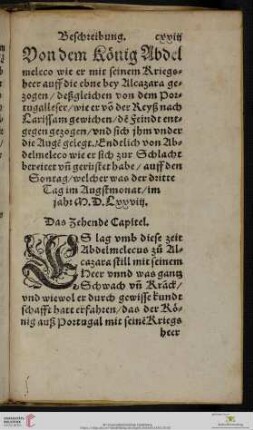 Beschreibung. cxviij
Von dem König Abdel
meleco wie er mit seinem Kriegs-
heer auff die ebne bey Alcazara ge-
zogen/ deßgleichen von dem Por-
tugalleser/ wie er vō der Reyß nach
Larissam gewichen/ dē Feindt ent-
gegen gezogen/ vnd sich jhm vnder
die Augē gelegt/ Endtlich von Ab-
delmeleco wie er sich zur Schlacht
bereitet vn̄ gerüstet habe/ auff den
Sontag/ welcher was der dritte
Tag im Augstmonat/ im
jahr M. D. Lxxviij.
Das Zehende Capitel.
ES lag vmb diese zeit
Abdelmelecus zů Al-
cazara still mit seinem
Heer vnnd was gantz
Schwach vn̄ Kranck/
vnd wiewol er durch gewisse kundt
schafft hatt erfahren/ das der Kö-
nig auß Portugal mit seinē Kriegs
heer